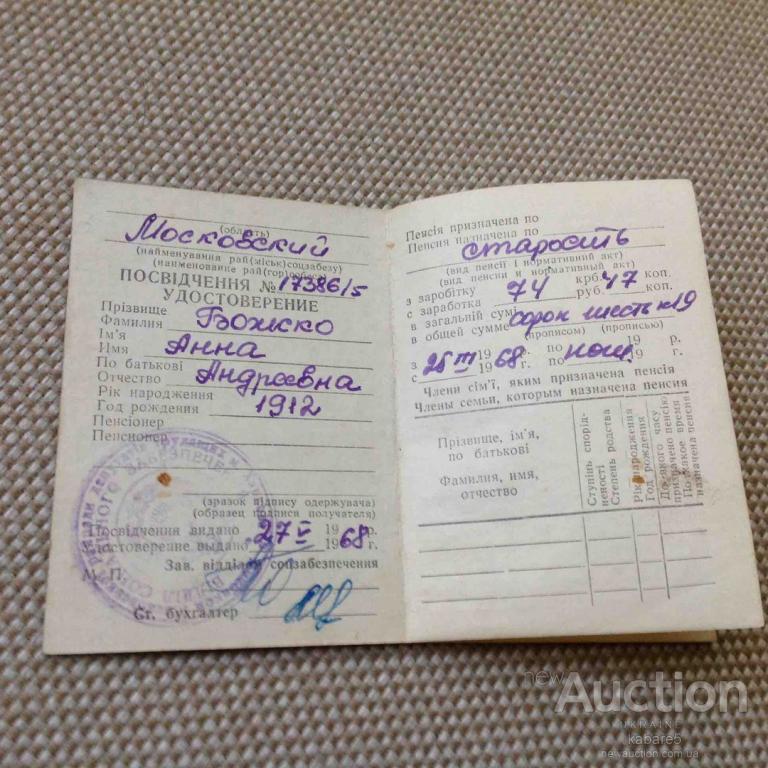 (область)
Московский
(найменування рай(міськ)соцзабезу)
(наименование рай(гор)собеса)
ПОСВІДЧЕННЯ № 173861/5
УДОСТОВЕРЕНИЕ
Прізвище
Фамилия Божко
Ім'я
Имя Анна
По батькові
Отчество Андреевна
Рік народження
Год рождения 1912
Пенсіонер
Пенсионер
(зразок підпису одержувача)
(образец подписи получателя)
Посвідчення видано 27 V 19 68 р.
Удостоверение выдано 19 г.
Зав. відділом соцзабезпечення
М. П.
Ст. бухгалтер
Пенсія призначена по
Пенсия назначена по старость
(вид пенсії і нормативний акт)
(вид пенсии и нормативный акт)
з заробітку 74 крб. 47 коп.
с заработка руб. коп.
в загальній сумі
в общей сумме сорок шесть к 19
(прописом) (прописью)
з 25 III 19 68 р. по пож 19 р.
с 19 г. по 19 г.
Члени сім'ї, яким призначена пенсія
Члены семьи, которым назначена пенсия
Прізвище, ім'я,
по батькові
Фамилия, имя,
отчество
Ступінь спорід-
неності
Степень родства
Рік народження
Год рождения
До якого часу
призначено пенсію
По какое время
назначена пенсия
new Auction
UKRAINE
kabare5
newauction.com.ua